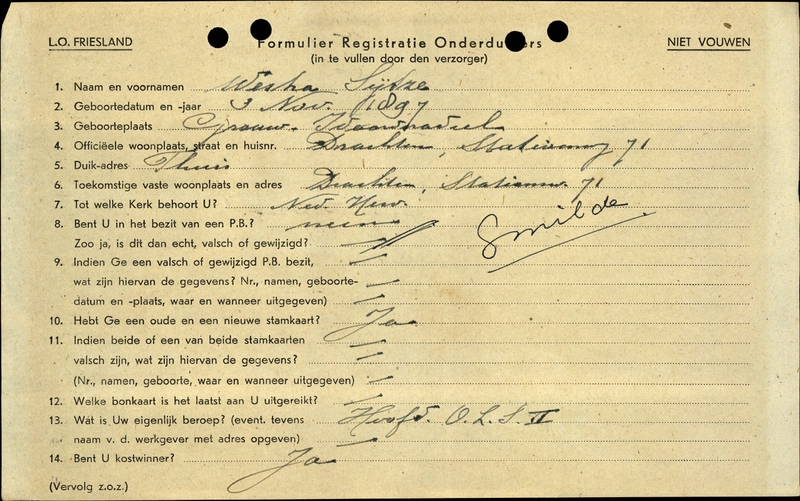 L.O. FRIESLAND Formulier Registratie Onderduikers NIET VOUWEN
(in te vullen door den verzorger)
1. Naam en voornamen Sijtze
2. Geboortedatum en -jaar 3 Nov. 1897
3. Geboorteplaats Grouw. Idaarderadeel
4. Officiëele woonplaats, straat en huisnr. Drachten, Stationsweg 71
5. Duik-adres Thuis
6. Toekomstige vaste woonplaats en adres Drachten, Stationsw. 71
7. Tot welke Kerk behoort U? Ned. Herv.
8. Bent U in het bezit van een P.B.? neen
Smilde
Zoo ja, is dit dan echt, valsch of gewijzigd?
9. Indien Ge een valsch of gewijzigd P.B. bezit,
wat zijn hiervan de gegevens? Nr., namen, geboorte-
datum en -plaats, waar en wanneer uitgegeven)
10. Hebt Ge een oude en een nieuwe stamkaart? Ja
11. Indien beide of een van beide stamkaarten
valsch zijn, wat zijn hiervan de gegevens?
(Nr., namen, geboorte, waar en wanneer uitgegeven)
12. Welke bonkaart is het laatst aan U uitgereikt?
13. Wat is Uw eigenlijk beroep? (event. tevens Hoofd. O.L.S. II
naam v. d. werkgever met adres opgeven)
14. Bent U kostwinner? Ja
(Vervolg z.o.z.)